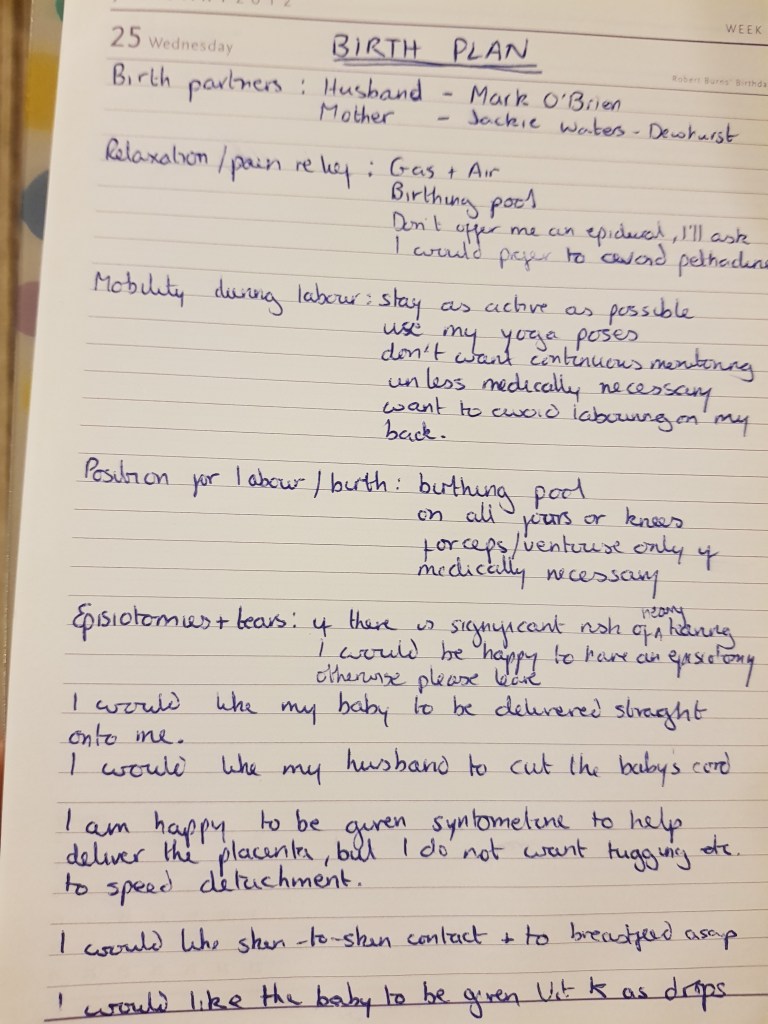 2012
WEEK
25 Wednesday
BIRTH PLAN
Robert Burns' Birthda
Birth partners : Husband - Mark O'Brien
Mother - Jackie Waters-Dewhurst
Relaxation/pain relief : Gas + Air
Birthing pool
Don't offer me an epidural, I'll ask
I would prefer to avoid pethadine
Mobility during labour : stay as active as possible
use my yoga poses
don't want continuous monitoring
unless medically necessary
want to avoid labouring on my
back.
Position for labour/birth : birthing pool
on all fours or knees
forceps/ventouse only if
medically necessary
Episiotomies + tears : if there is significant risk of tearing
I would be happy to have an episiotomy
otherwise please leave
I would like my baby to be delivered straight
onto me.
I would like my husband to cut the baby's cord
I am happy to be given syntometrine to help
deliver the placenta, but I do not want tugging etc.
to speed detachment.
I would like skin-to-skin contact + to breastfeed asap
I would like the baby to be given Vit K as drops